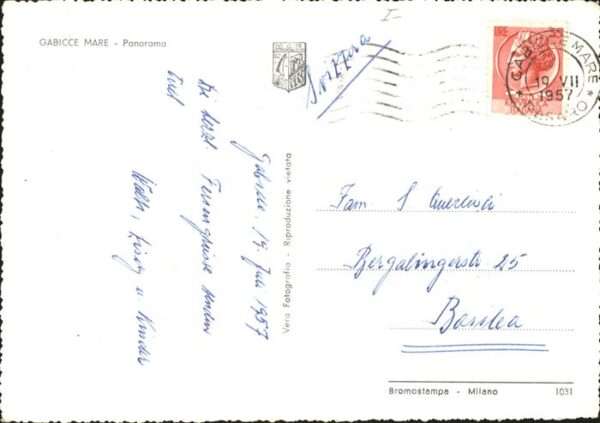 GABICCE MARE - Panorama
Svizzera
LIRE
GABICCE MARE
19 VII
1957
* PESARO *
Gabicce, 19. Juli 1957
Die herzl. Feriengrüsse senden
Euch
u Kinder
Vera Fotografia - Riproduzione vietata
Fam S
Bergalingerstr 25
Basilea
Bromostampa - Milano
1031